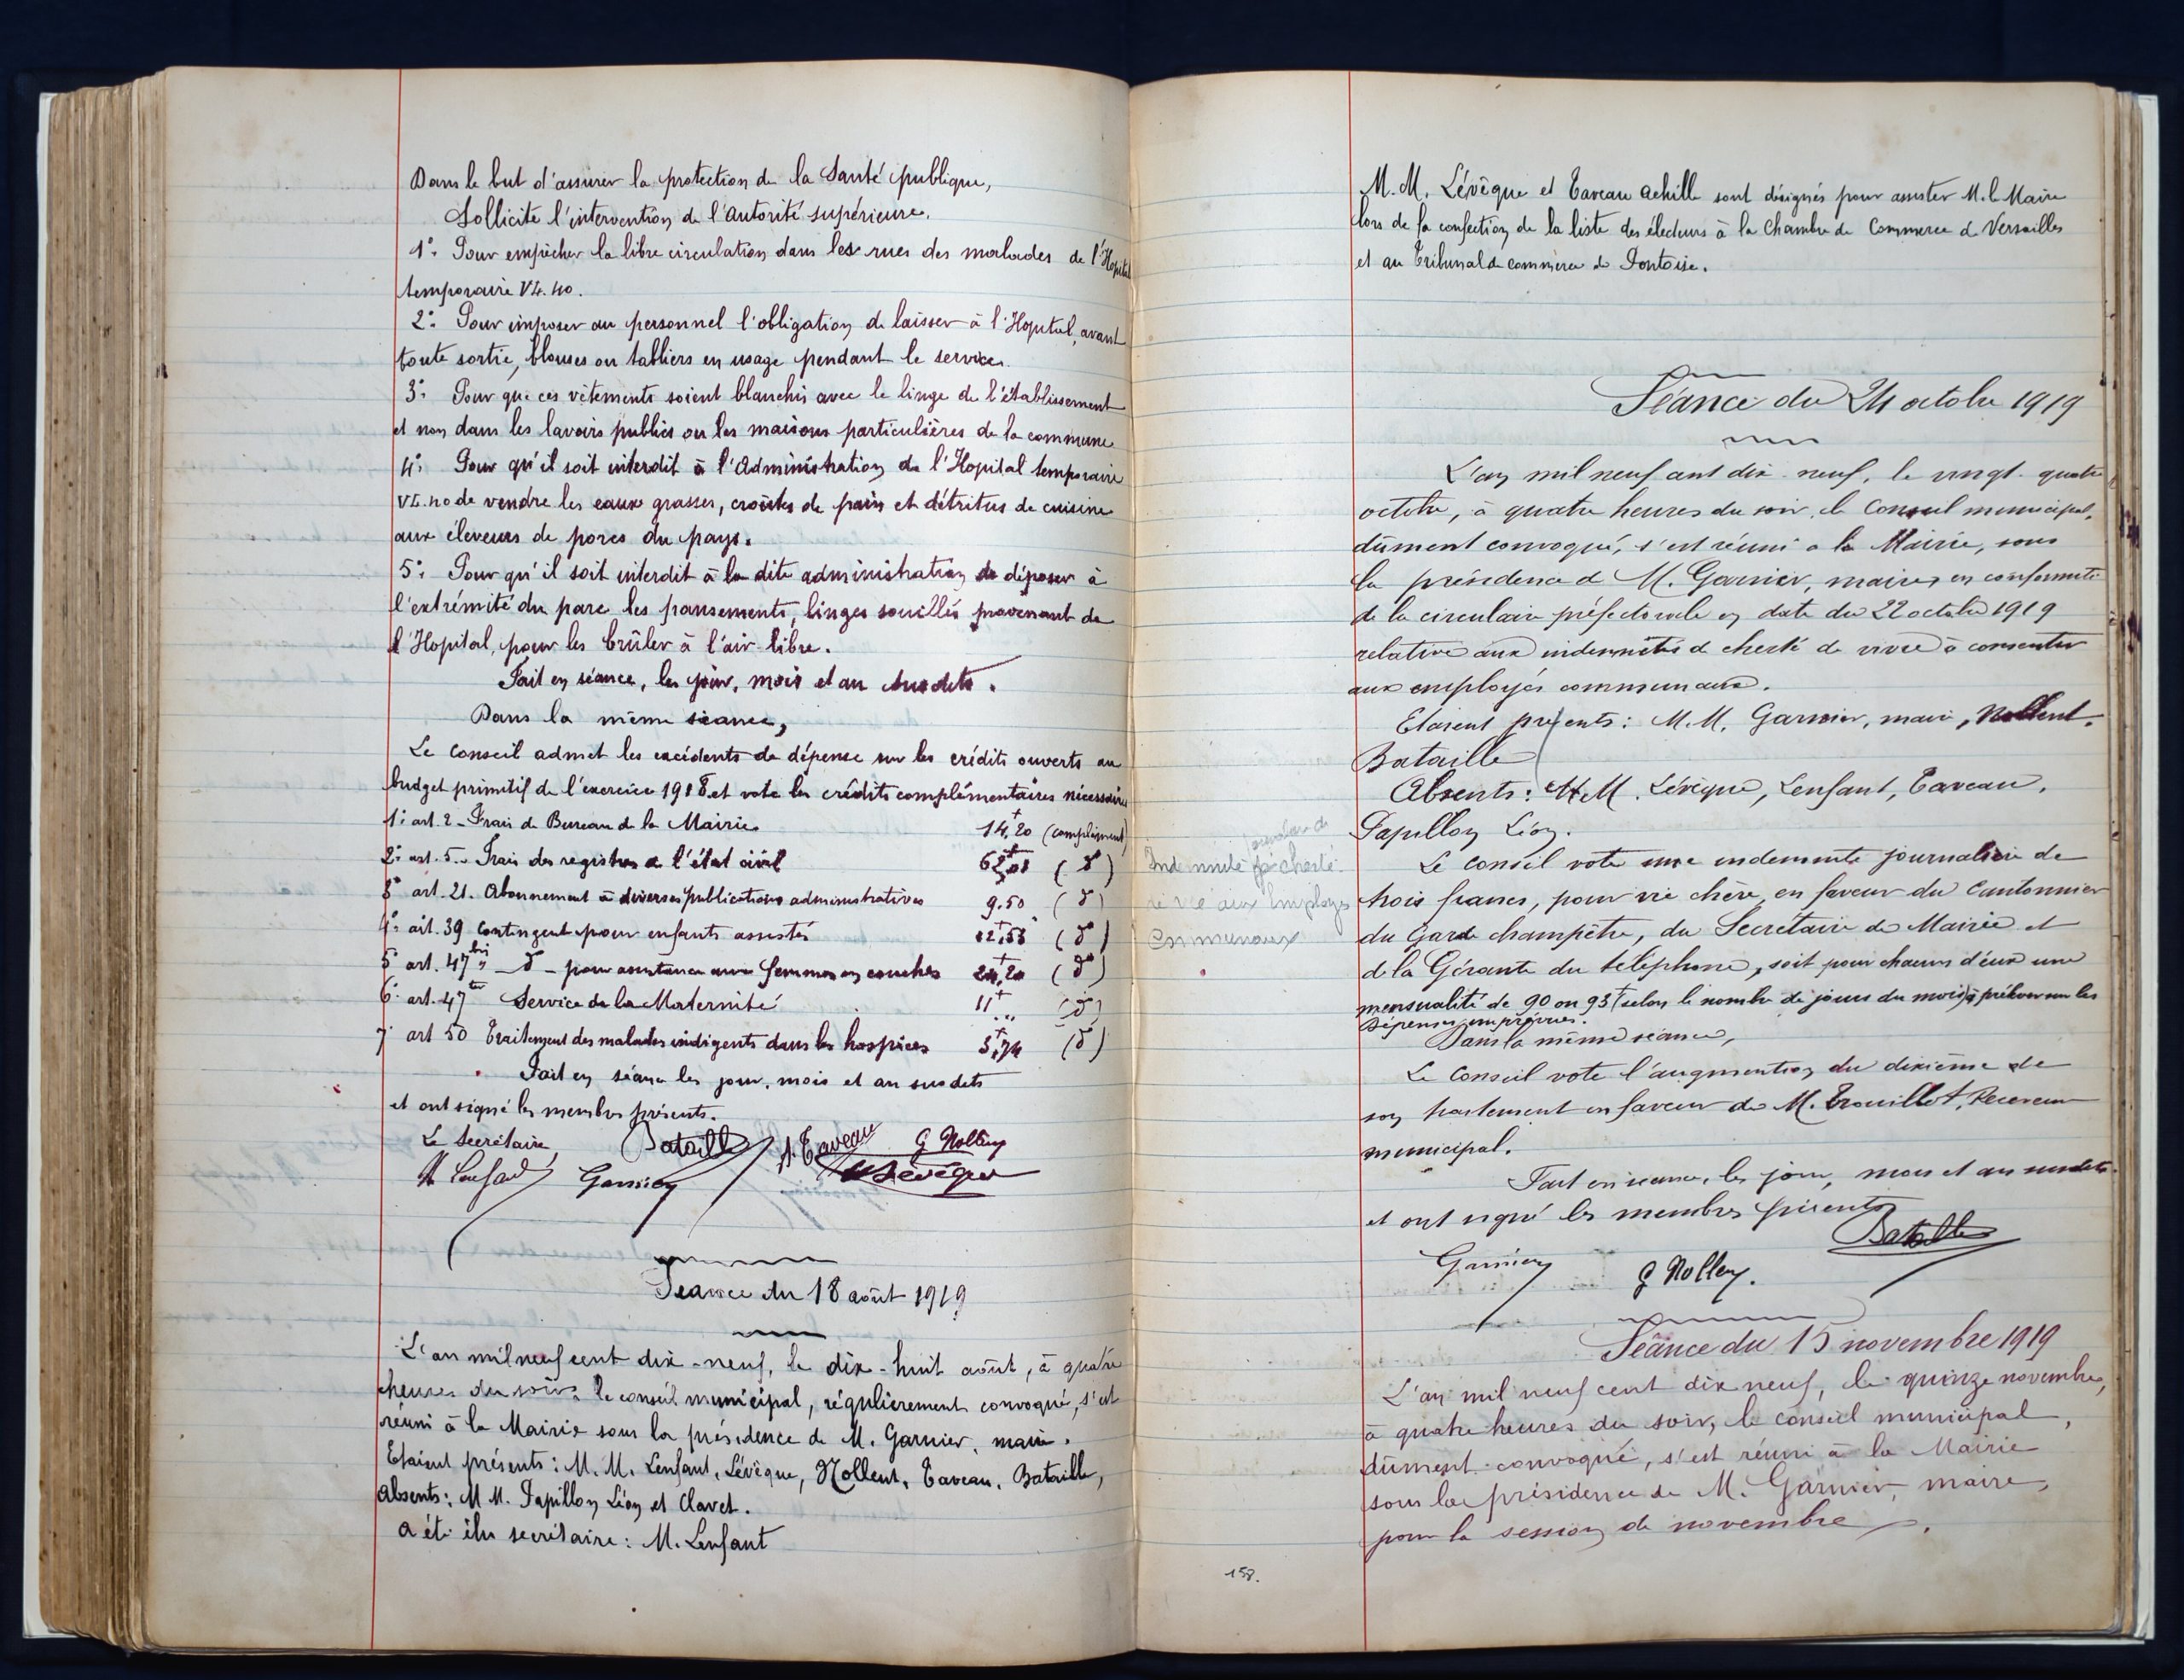 Dans le but d'assurer la protection de la Santé publique,
Sollicite l'intervention de l'autorité supérieure.
1º: Pour empêcher la libre circulation dans les rues des malades de l'Hopital
temporaire V.G. 40.
2º: Pour imposer au personnel l'obligation de laisser à l'Hopital, avant
toute sortie, blouses ou tabliers en usage pendant le service.
3º: Pour que ces vêtements soient blanchis avec le linge de l'établissement
et non dans les lavoirs publics ou les maisons particulières de la commune
4º: Pour qu'il soit interdit à l'Administration de l'Hopital temporaire
V.G. 40 de vendre les eaux grasses, croûtes de pain et détritus de cuisine
aux éleveurs de porcs du pays.
5º: Pour qu'il soit interdit à la dite administration de déposer à
l'extrémité du parc les pansements, linges souillés provenant de
l'Hopital, pour les brûler à l'air libre.
Fait en séance, les jour, mois et an susdits.
Dans la même séance,
Le Conseil admet les excédents de dépense sur les crédits ouverts au
budget primitif de l'exercice 1918 et vote les crédits complémentaires nécessaires
1º art. 2 - Frais de Bureau de la Mairie 14f,20 (complément)
2º art. 5 - Frais des registres de l'état civil (dº)
3º art. 21. Abonnement à diverses publications administratives 9.50 (dº)
4º art. 39 Contingent pour enfants assistés (dº)
5º art. 47 bis - dº - pour assistance aux femmes en couches 24f,20 (dº)
6º art. 47 ter Service de la Maternité 11f,.. (dº)
7º art 50 Traitement des malades indigents dans les hospices 3f,74 (dº)
Fait en séance les jour, mois et an susdits
et ont signé les membres présents.
Le Secrétaire, Bataille A. Taveau G Nollent
Lenfant Garnier Lévêque
Séance du 18 août 1919
L'an mil neuf cent dix-neuf, le dix-huit août, à quatre
heures du soir, le conseil municipal, régulièrement convoqué, s'est
réuni à la Mairie sous la présidence de M. Garnier, maire.
Etaient présents: M.M. Lenfant, Lévêque, Nollent, Taveau, Bataille,
Absents: M M. Papillon Léon et Clavet.
a été élu secrétaire: M. Lenfant
M.M. Lévêque et Taveau Achille sont désignés pour assister M. le Maire
lors de la confection de la liste des électeurs à la Chambre de Commerce de Versailles
et au Tribunal de commerce de Pontoise.
Séance du 24 octobre 1919
L'an mil neuf cent dix-neuf, le vingt-quatre
octobre, à quatre heures du soir, le Conseil municipal,
dûment convoqué, s'est réuni à la Mairie, sous
la présidence de M. Garnier, maire, en conformité
de la circulaire préfectorale en date du 22 octobre 1919
relative aux indemnités de cherté de vivre à consentir
aux employés communaux.
Etaient présents: M.M. Garnier, maire, Nollent,
Bataille
Absents: M.M. Lévêque, Lenfant, Taveau,
Papillon Léon.
Indemnité cherté
vie aux Employés
Communaux
Le Conseil vote une indemnité journalière de
trois francs, pour vie chère, en faveur du Cantonnier
du Garde champêtre, du Secrétaire de Mairie et
de la Gérante du téléphone, soit pour chacun d'eux une
mensualité de 90 ou 93f (selon le nombre de jours du mois) à prélever sur les
dépenses imprévues.
Dans la même séance,
Le Conseil vote l'augmention du dixième de
son traitement en faveur de M. Trouillet, Receveur
municipal.
Fait en séance, les jour, mois et an susdits
et ont signé les membres présents
Bataille
Garnier G Nollent.
Séance du 15 novembre 1919
L'an mil neuf cent dix neuf, le quinze novembre,
à quatre heures du soir, le conseil municipal,
dûment convoqué, s'est réuni à la Mairie
sous la présidence de M. Garnier, maire,
pour la session de novembre.
158.